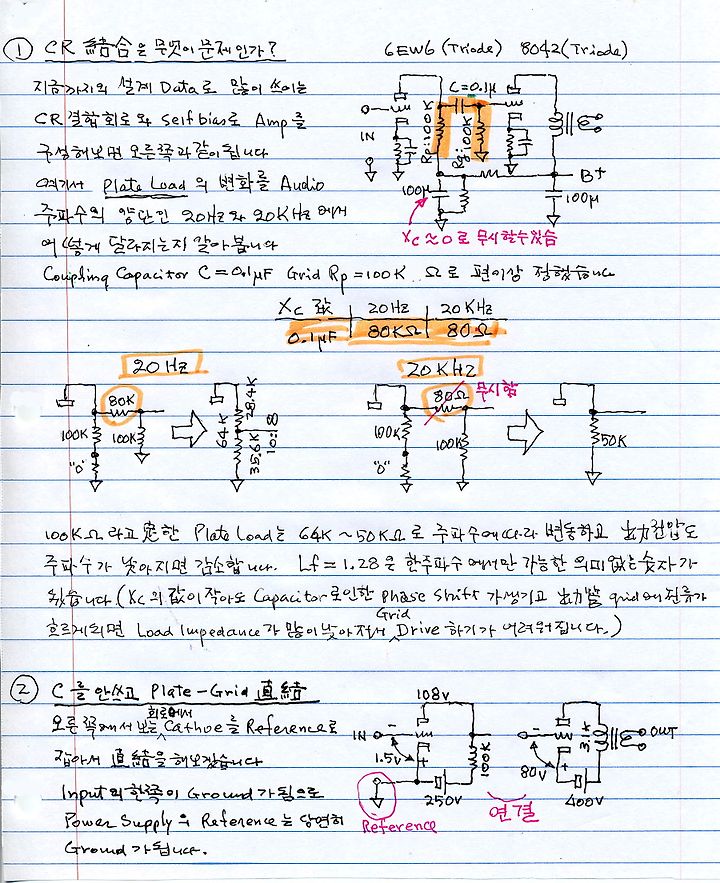 ① CR 結合은 무엇이 문제인가?
6EW6 (Triode) 8042 (Triode)
지금까지의 설계 Data로 많이 쓰이는
CR 결합회로와 Self bias로 Amp를
구성해보면 오른쪽과 같이 됩니다
여기서 Plate Load 의 변화를 Audio
주파수의 양단인 20Hz와 20KHz에서
어떻게 달라지는지 알아봅니다
Coupling Capacitor C=0.1μF Grid Rp=100K Ω로 편의상 정했습니다
C=0.1μ
IN
Rp:100K
Rg:100K
B+
100μ
100μ
Xc≈0로 무시할수있음
Xc 값 20Hz 20KHz
0.1μF 80KΩ 80Ω
20Hz
20KHz
80K
100K
100K
"0"
64K
28.4K
35.6K
10:18
80Ω 무시함
100K
100K
"0"
50K
100KΩ라고 定한 Plate Load는 64K~50KΩ로 주파수에따라 변동하고 出力전압도
주파수가 낮아지면 감소합니다. Lf=1.28은 한주파수에서만 가능한 의미없는 숫자가
됬습니다 (Xc의 값이 작아도 Capacitor로인한 Phase Shift 가생기고 出力管 grid에 전류가
흐르게되면 Load Impedance가 많이낮아져서 Grid Drive 하기가 어려워집니다.)
② C를 안쓰고 Plate-Grid 直結
오른쪽에서 보는 회로에서 Cathoe를 Reference로
잡아서 直結을 해보겠습니다
Input의 한쪽이 Ground가됨으로
Power Supply의 Reference는 당연히
Ground가 됩니다.
108V
IN
1.5V
100K
250V
Reference
연결
80V
3K
400V
OUT